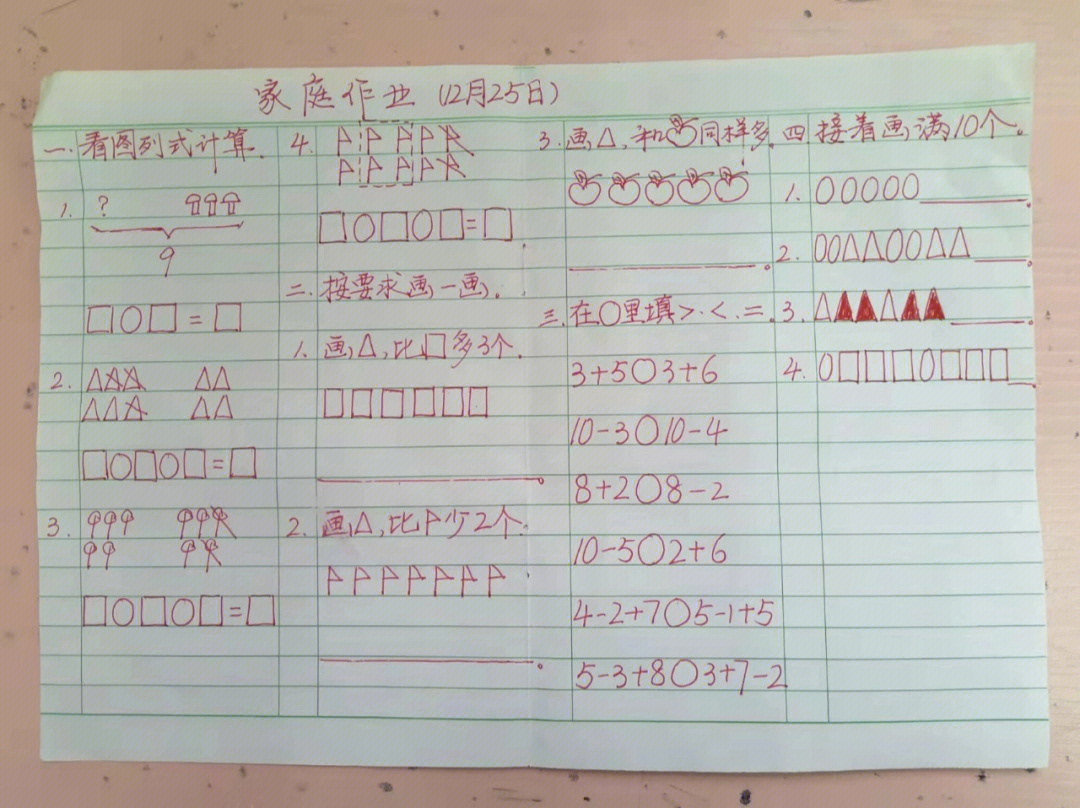 家庭作业(12月25日)
一.看图列式计算.
1. ?
9
□○□=□
2.
□○□○□=□
3.
□○□○□=□
4.
□○□○□=□.
二.按要求画一画.
1. 画△,比□多3个.
□□□□□□
2. 画△,比 少2个.
3. 画△,和 同样多.
三.在○里填>.<.=.
3+5○3+6
10-3○10-4
8+2○8-2
10-5○2+6
4-2+7○5-1+5
5-3+8○3+7-2
四 接着画满10个。
1. ○○○○○
2. ○○△△○○△△
3. △▲▲△▲▲
4. ○□□□○□□□